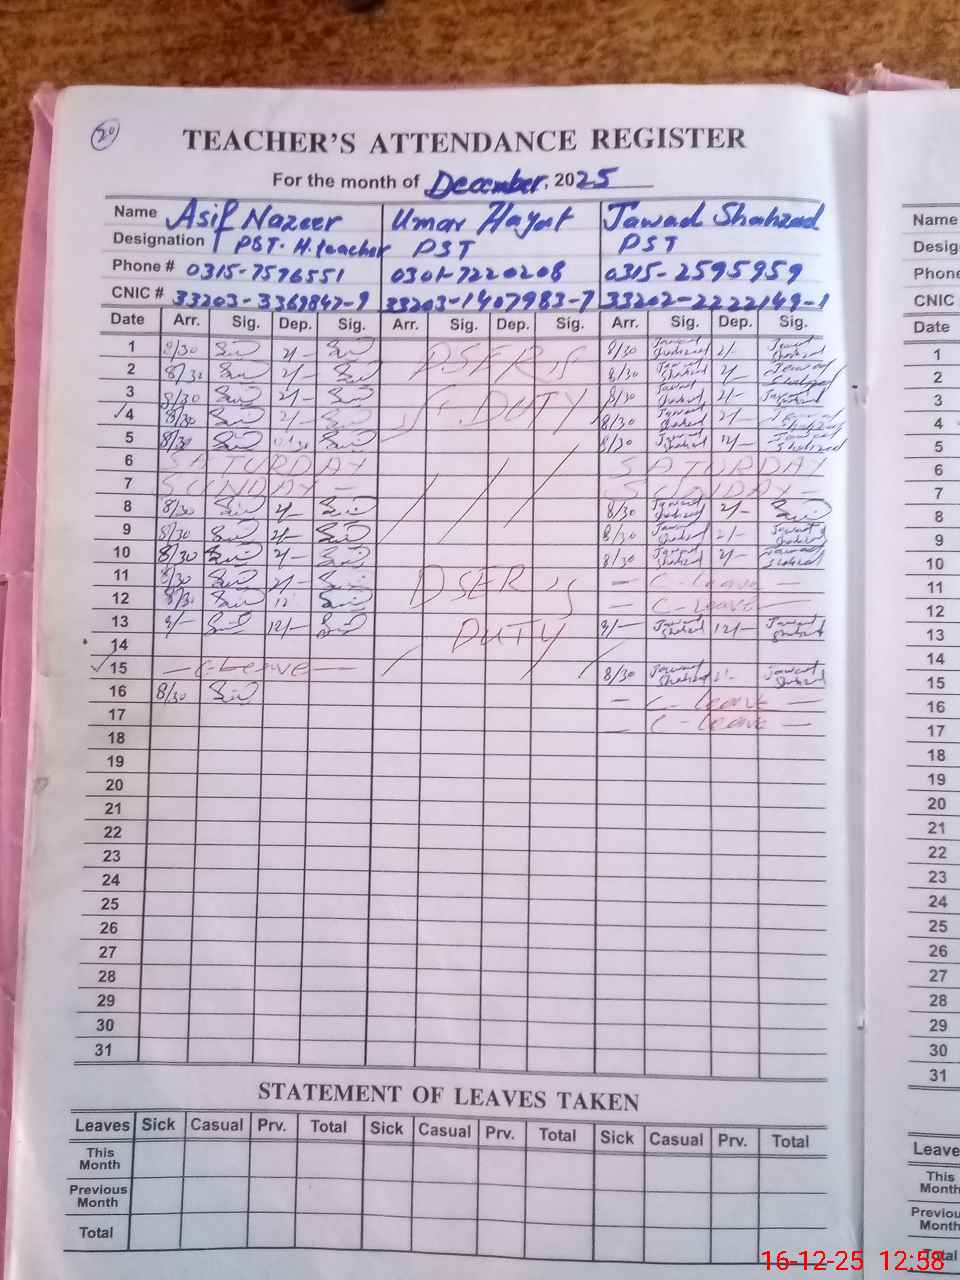 20
TEACHER'S ATTENDANCE REGISTER
For the month of December, 2025
Name Asif Nazeer Umar Hayat Jawad Shahzad
Designation PST. H. teacher PST PST
Phone # 0315-7576551 0301-7220208 0315-2595959
CNIC # 33203-3369847-9 33203-1407983-7 33202-2222149-1
Date Arr. Sig. Dep. Sig. Arr. Sig. Dep. Sig. Arr. Sig. Dep. Sig.
1 8/30 2/- DSER's 8/30 Jawad Shahzad 2/- Jawad Shahzad
2 8/30 2/- 8/30 Jawad Shahzad 2/- Jawad Shahzad
3 8/30 2/- DUTY 8/30 Jawad Shahzad 2/- Jawad Shahzad
4 8/30 2/- 8/30 Jawad Shahzad 2/- Jawad Shahzad
5 8/30 8/30 Jawad Shahzad 12/- Jawad Shahzad
6 SATURDAY SATURDAY
7 SUNDAY - SUNDAY -
8 8/30 2/- 8/30 Jawad Shahzad 2/-
9 8/30 2/- 8/30 Jawad Shahzad 2/- Jawad Shahzad
10 8/30 2/- 8/30 Jawad Shahzad 2/- Jawad Shahzad
11 8/30 2/- DSER's - C-Leave -
12 8/30 - C-Leave -
13 9/- 12/- DUTY 9/- Jawad Shahzad 12/- Jawad Shahzad
14
15 - C-Leave - 8/30 Jawad Shahzad 2/- Jawad Shahzad
16 8/30 - C-Leave -
17 C-Leave -
18
19
20
21
22
23
24
25
26
27
28
29
30
31
STATEMENT OF LEAVES TAKEN
Leaves Sick Casual Prv. Total Sick Casual Prv. Total Sick Casual Prv. Total
This Month
Previous Month
Total
Name
Phone
CNIC #
Date
1
2
3
4
5
6
7
8
9
10
11
12
13
14
15
16
17
18
19
20
21
22
23
24
25
26
27
28
29
30
31
Leave
This
Month
Month
Total
16-12-25 12:58